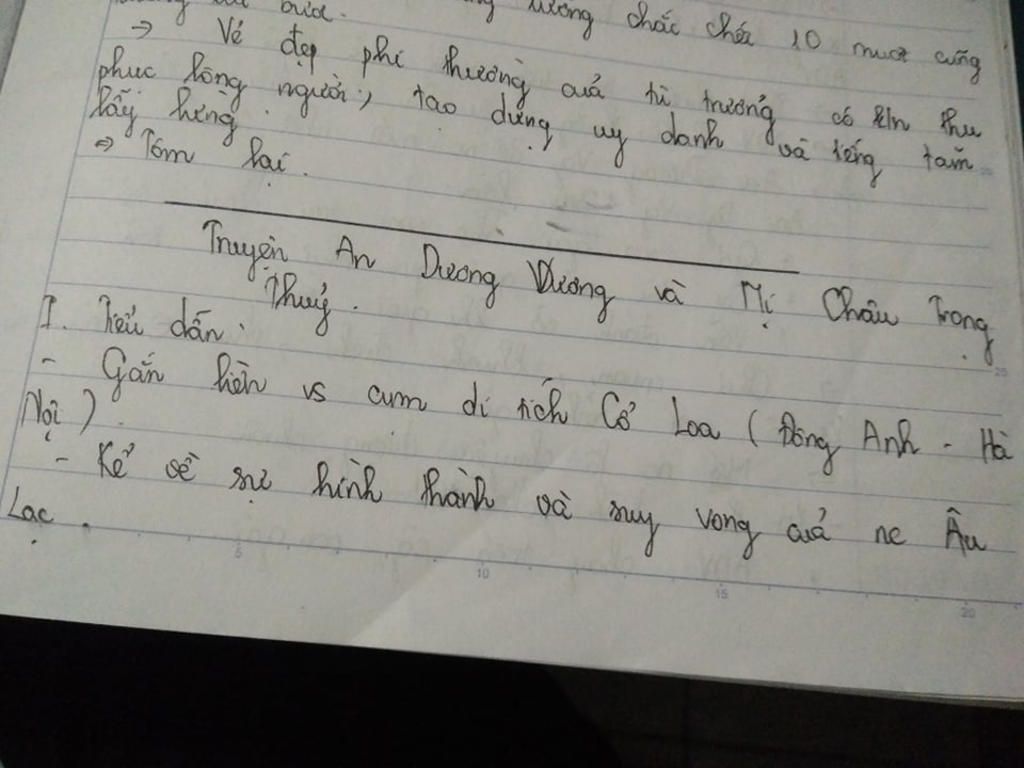 lương chắc chén 10 mươi cũng
→ Vẻ đẹp phi thường của tù trưởng có kln thu
phục lòng người, tạo dựng uy danh và tiếng tăm
lẫy lừng.
⇒ Tóm lại.
Truyện An Dương Vương và Mị Châu Trọng
Thuỷ.
I. Tiểu dẫn:
- Gắn liền vs cụm di tích Cổ Loa (Đông Anh - Hà
Nội).
- Kể về sự hình thành và suy vong của nc Âu
Lạc.
5 10 15 20
25